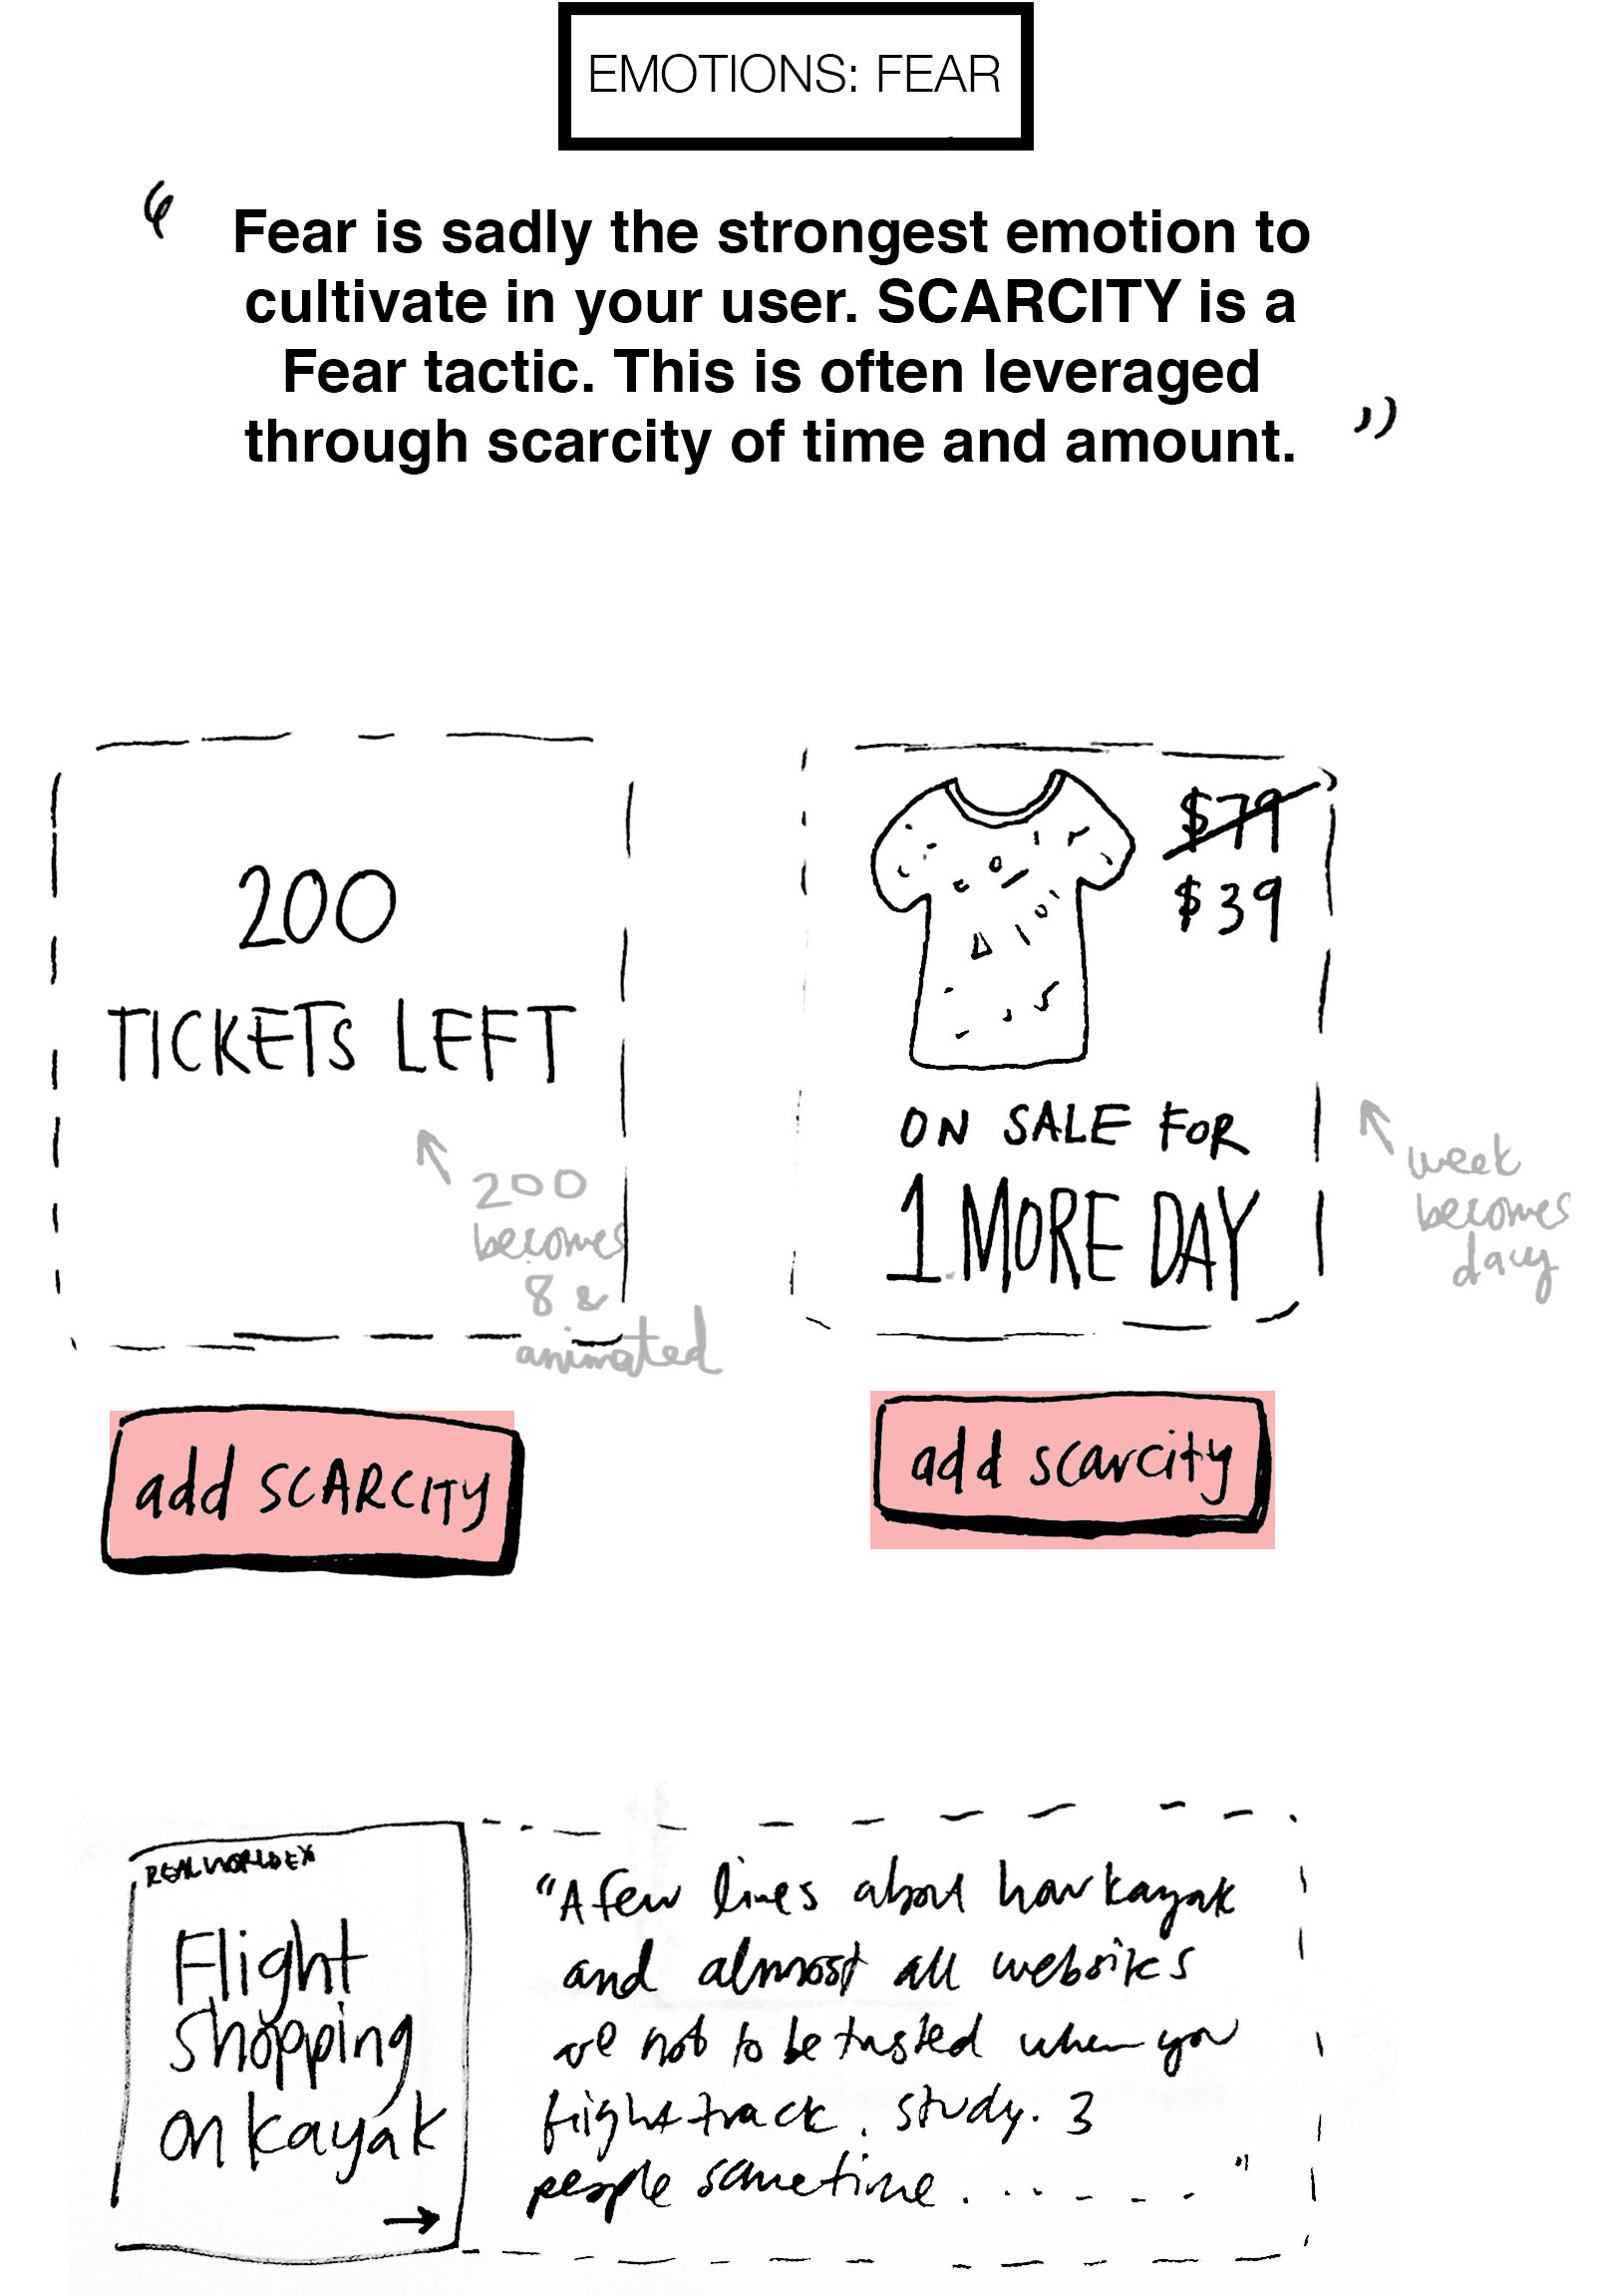 EMOTIONS: FEAR
“ Fear is sadly the strongest emotion to
cultivate in your user. SCARCITY is a
Fear tactic. This is often leveraged
through scarcity of time and amount. ”
200
TICKETS LEFT
200
becomes
8 &
animated
add SCARCITY
$79
$39
ON SALE FOR
1 MORE DAY
week
becomes
day
add scarcity
REAL WORLD EX
Flight
Shopping
on kayak
→
“A few lines about how kayak
and almost all websites
are not to be trusted when you
flight track. study. 3
people same time. . . - - - - "